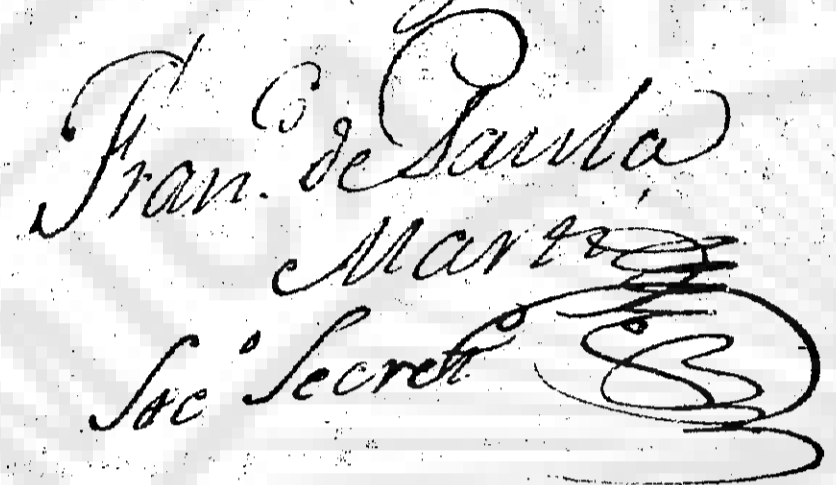 Fran.co de Paula
Martí
Soc.o Secret.o